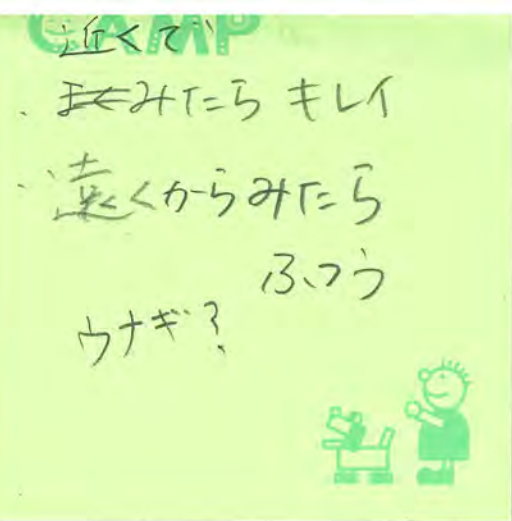 CAMP
近くで
・みたら キレイ
・遠くからみたら
ふつう
ウナギ?